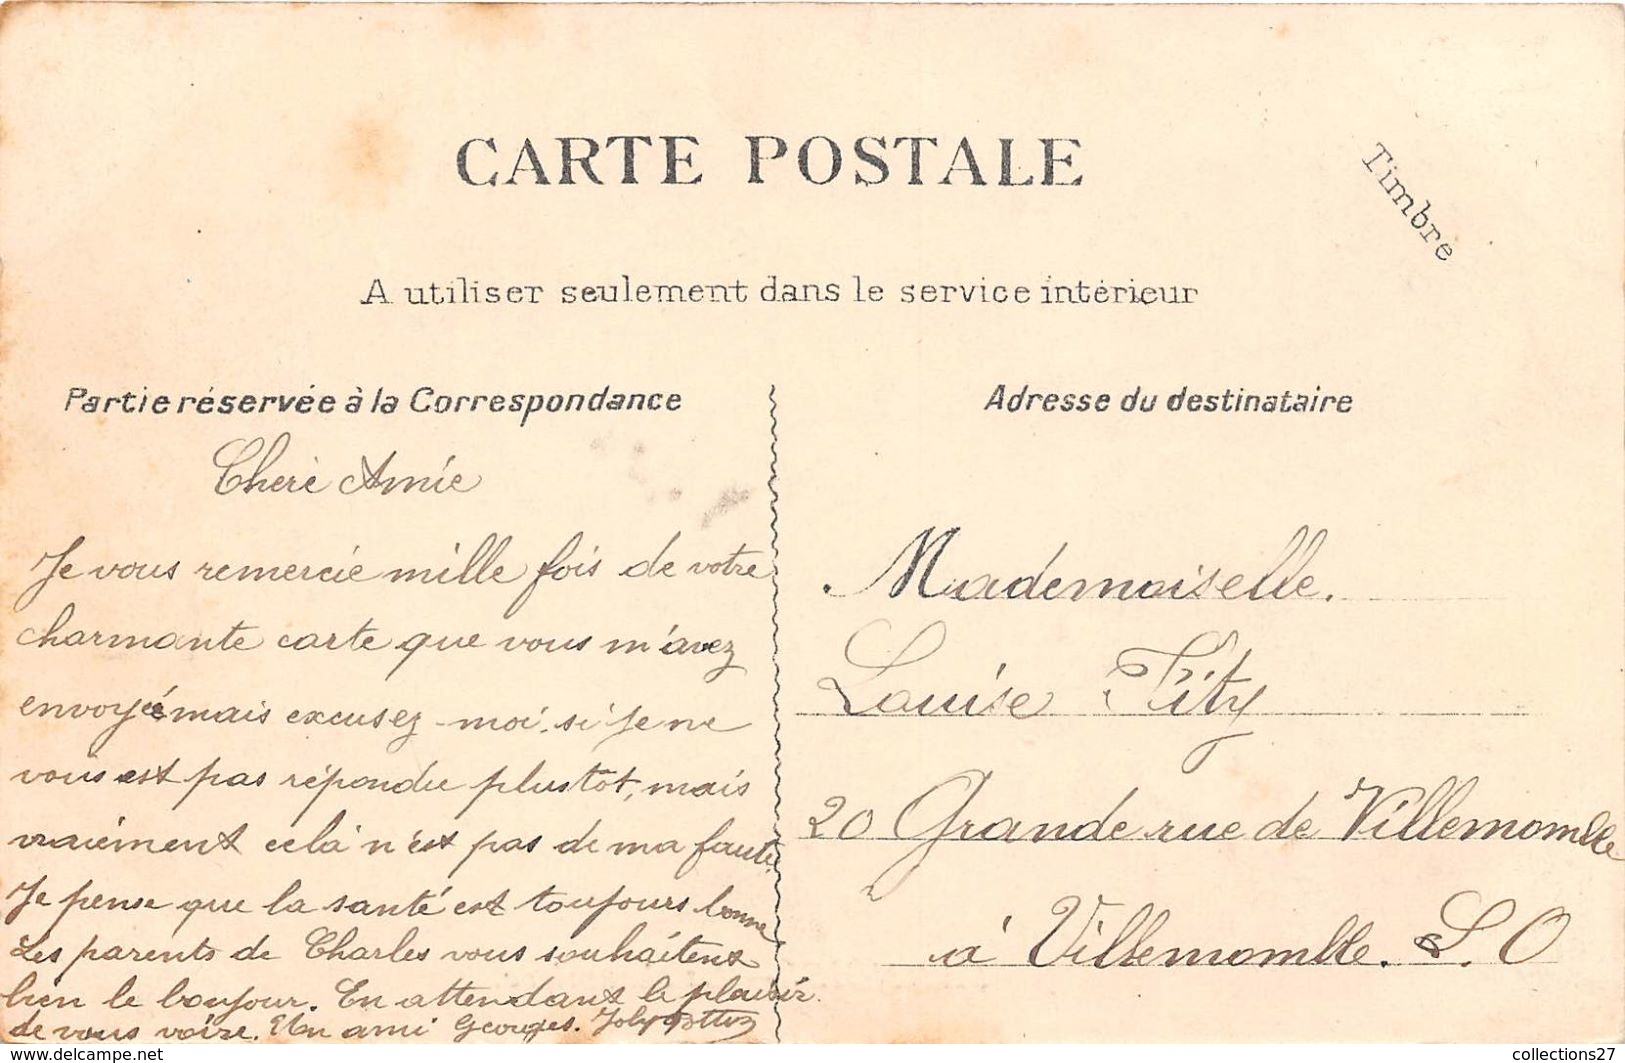 CARTE POSTALE
Timbre
A utiliser seulement dans le service intérieur
Partie réservée à la Correspondance
Cheré Amie
Je vous remercie mille fois de votre
charmante carte que vous m'avez
envoyée mais excusez-moi si je ne
vous est pas répondu plustot, mais
vraiement celà n'est pas de ma faute.
Je pense que la santé est toujours bonne
Les parents de Charles vous souhaitent
bien le bonjour. En attendant le plaisir
de vous voire. Un ami Georges.
Adresse du destinataire
Mademoiselle.
Louise
20 Grande rue de Villemomble
à Villemomble. S. O
collections27